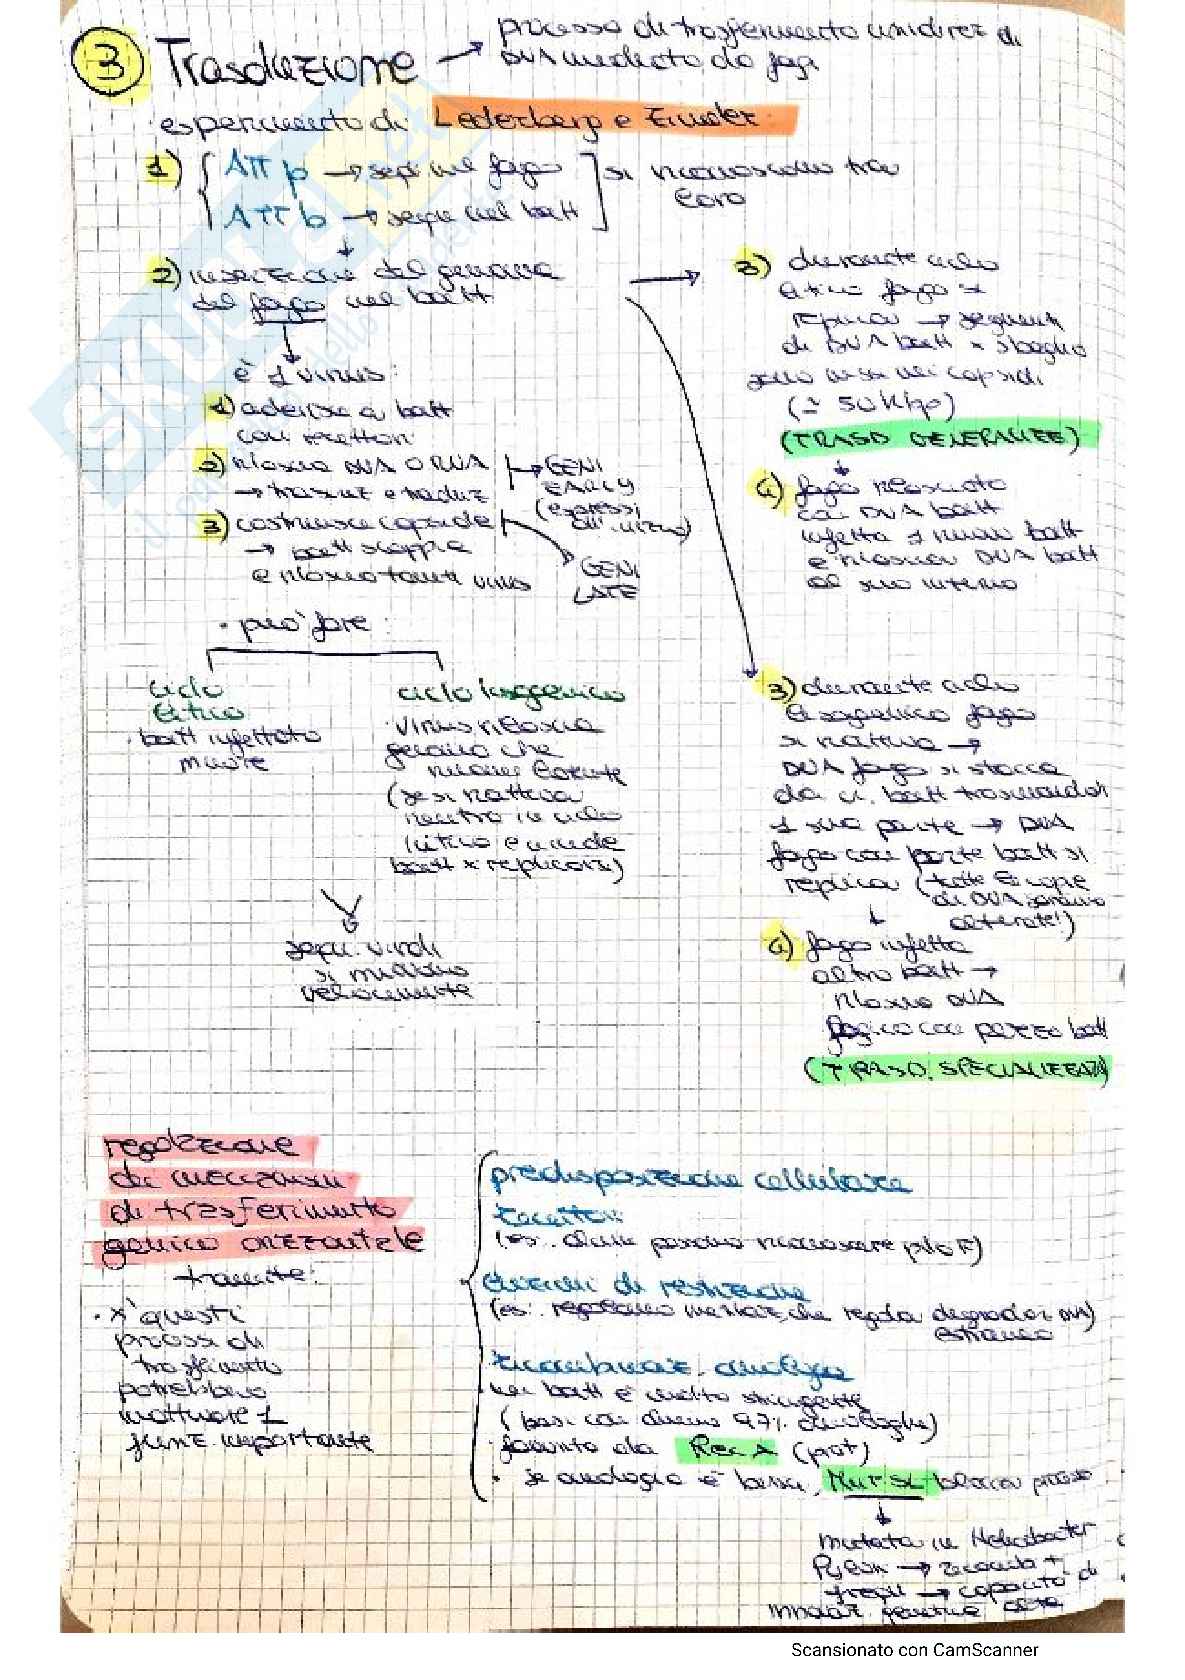 3 Trasduzione → processo di trasferimento unidirez di
DNA mediato da fagi
esperimento di Lederberg e Zinder
1) ATT p → sequ nel fago
ATT b → sequ nel batt
si riconoscono tra
loro
2) inserzione del genoma
del fago nel batt
è 1 virus:
1) aderisce a batt
con recettori
2) rilascia DNA o RNA
→ trascriz e traduz
GENI
EARLY
(espressi
all'inizio)
3) costruisce capside
→ batt scoppia
e rilascia tanti virus
GENI
LATE
• può fare:
ciclo
litico
• batt infettato
muore
ciclo lisogenico
• virus rilascia
genoma che
rimane latente
(se si riattiva
rientra in ciclo
litico e uccide
batt x replicarsi)
sequ. virali
si muovono
velocemente
3) durante ciclo
litico fago si
replica → segmenti
di DNA batt x sbaglio
sono messi nei capsidi
(≃ 50 Kbp)
(TRASD GENERALIZZ)
4) fago rilasciato
con DNA batt
infetta 1 nuovo batt
e rilascia DNA batt
al suo interno
3) durante ciclo
lisogenico fago
si riattiva →
DNA fago si stacca
da cr. batt trascinandosi
1 sua parte → DNA
fago con parte batt si
replica (tutte le copie
di DNA saranno
alterate!)
4) fago infetta
altro batt →
rilascia DNA
fagico con pezzo batt
(TRASD. SPECIALIZZATA)
regolazione
dei meccanismi
di trasferimento
genico orizzontale
tramite:
• x' questi
processi di
trasferimento
potrebbero
inattivare 1
funz. importante
predisposizione cellulare
recettori
(es. alcuni possono riconoscere pilo F)
enzimi di restrizione
(es. regolano metilaz, che regola degradaz DNA)
estraneo
ricombinaz. omologa
• nei batt è molto stringente
(basi con almeno 97% omologhe)
• favorito da Rec A (prot)
• se omologia è bassa, Mut SL blocca processo
mutata in Helicobacter
Pylori → ricomb +
frequ → capacità di
innovaz. genetica alta
Scansionato con CamScanner